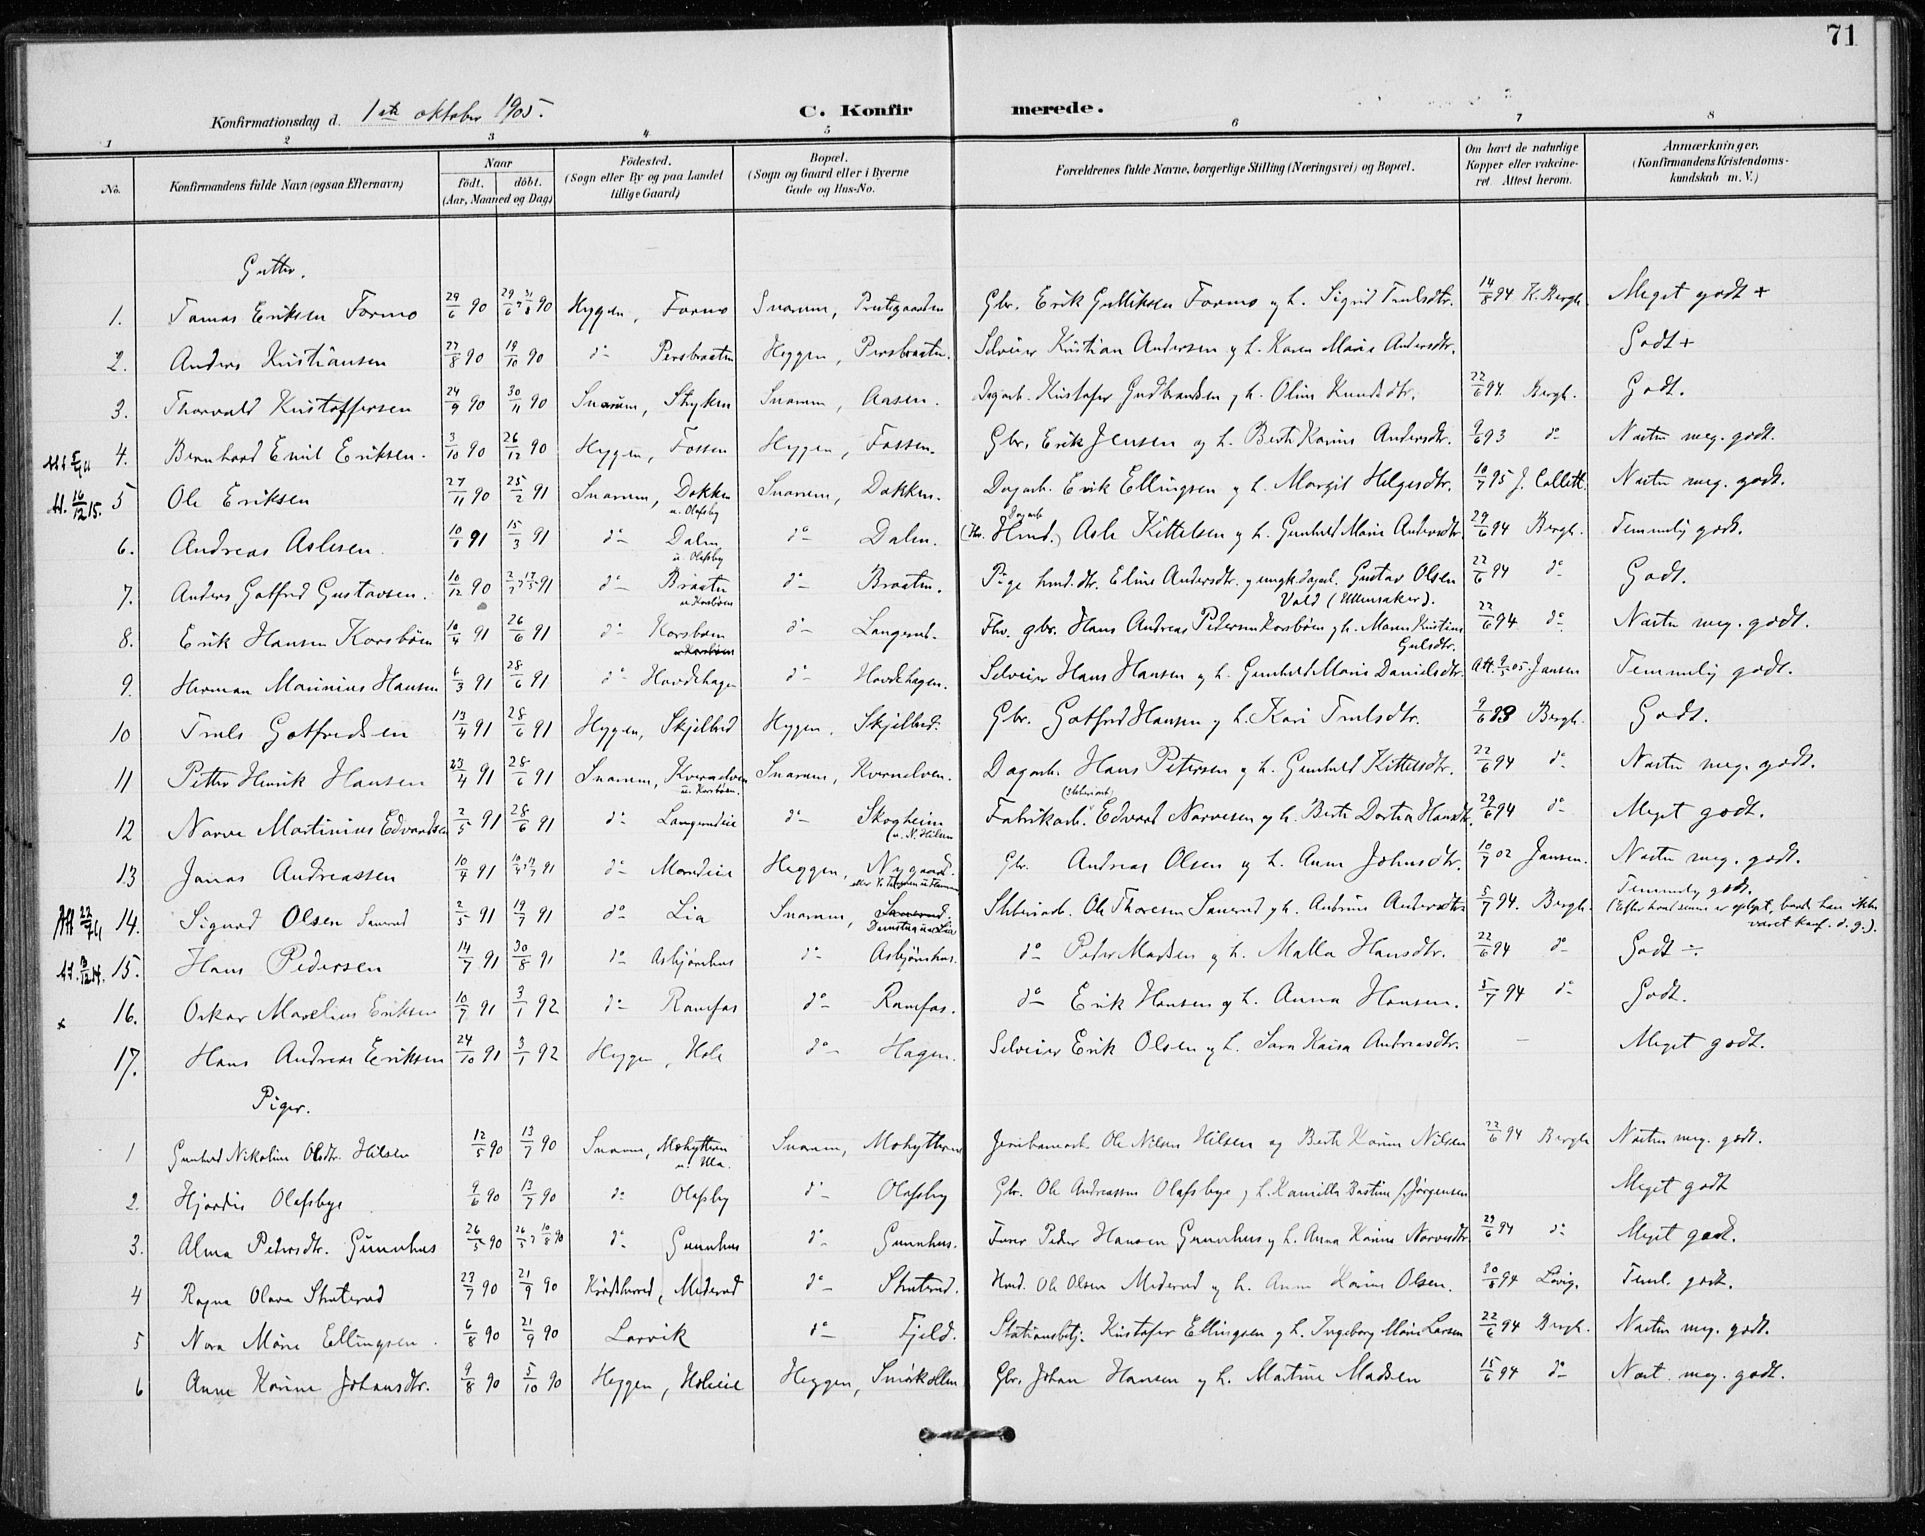 71
Konfirmationsdag d. 1ste oktober 1905. C. Konfirmerede.
1 2 3 4 5 6 7 8
No. Konfirmandens fulde Navn (ogsaa Efternavn) Naar födt. döbt. (Aar, Maaned og Dag) Födested. (Sogn eller By og paa Landet tillige Gaard) Bopæl. (Sogn og Gaard eller i Byerne Gade og Hus-No. Forældrenes fulde Navne, borgerlige Stilling (Næringsvei) og Bopæl. Om havt de naturlige Kopper eller vakcineret. Attest herom. Anmærkninger. (Konfirmandens Kristendomskundskab m. V.)
Gutter.
1. Tomas Eriksen Formo 29/6 90 Hyggen, Formo Snarum, Gbr. Erik Gulliksen Formo og h. Sigrid Trulsdtr. 14/8 94 K. Bergh. Meget godt +
2. Anders Kristiansen 27/8 90 19/10 90 do Persbraaten Heggen, Persbraaten. Selveier Kristian Andersen og h. Karen Marie Andersdtr. Godt +
3. Thorvald Kristoffersen 24/9 90 30/11 90 Snarum, Styken Snarum, Aasen. Dagarb. Kristofer Gudbrandsen og h. Oline Knudsdtr. 22/6 94. Bergh. Godt.
4. Bernhard Emil Eriksen. 3/10 90 26/12 90 Hyggen, Fossen Heggen, Fossen. Gbr. Erik Jensen og h. Berte Karine Andersdtr. 9/6 93 do Næsten meg. godt.
16/12 15. 5 Ole Eriksen 27/11 90 25/2 91 Snarum, Dokken u. Olafsby Snarum, Dokken. Dagarb. Erik Ellingsen og h. Margit Helgesdtr. 10/7 95 J. Collett. Næsten meg. godt.
6. Andreas Aslesen. 10/1 91 15/3 91 do Dalen u. Olafsby do Dalen. Asle Kittelsen og h. Gunhild Marie Andersdtr. 29/6 94 Bergh. Temmelig godt.
7. Anders Gotfred Gustavsen. 10/12 90 do Braaten u. Korsbøen do Braaten. Pige hmd.dtr. Eline Andersdtr. og ungk. dagarb. Gustav Olsen Vold (Ullensaker). 22/6 94 do Godt.
8. Erik Hansen Korsbøen 10/4 91 26/6 91 do Korsbøen u. Korsbøen do Fhv. gbr. Hans Andreas Pedersen Korsbøen og h. Maren Kristine Gulsdtr. 22/6 94. do Næsten meg. godt.
9. Herman Marinius Hansen 6/3 91 28/6 91 do Hovdehagen do Hovdehagen. Selveier Hans Hansen og h. Gunhild Marie Danielsdtr. Att. 9/5 05. Jansen Temmelig godt.
10 Truls Gotfredsen 13/4 91 28/6 91 Heggen, Skjelbred Heggen, Skjelbred. Gbr. Gotfred Hansen og h. Kari Trulsdtr. 9/6 93 Bergh. Godt.
11 Petter Henrik Hansen 23/4 91 28/6 91 Snarum, Kvernelven u. Korsbøen. Snarum, Kvernelven. Dagarb. Hans Petersen og h. Gunhild Kittelsdtr. 22/6 94 do Næsten meg. godt.
12 Narve Martinius Edvardsen 2/5 91 28/6 91 do Langerudeie do Skogheim (u. N. Hilsen Fabrikarb. (Sliberiarb.) Edvard Narvesen og h. Berte Dortea Hansdtr. 29/6 94 do Meget godt.
13 Jonas Andreassen 10/4 91 do Moendeie Heggen, Nygaard. Gbr. Andreas Olsen og h. Anne Johnsdtr. 10/7 02 Jansen. Næsten meg. godt.
14. Sigurd Olsen Sanerud 2/5 91 19/7 91 do Lia Snarum, Sanerud. Sliberiarb. Ole Thoresen Sanerud og h. Andrine Andersdtr. 5/7 94. Bergh. Temmelig godt. (Efter hvad senere er oplyst, burde han ikke været konf. d. g.).
15. Hans Pedersen 14/7 91 30/8 91 do Asbjørnhus do Asbjørnhus. do Peter Madsen og h. Malla Hansdtr. 22/6 94 do Godt ÷
x 16. Oskar Marelius Eriksen 10/7 91 3/1 92 do Ramfos do Ramfos. do Erik Hansen og h. Anna Hansen. 5/7 94 do Godt.
17. Hans Andreas Eriksen 24/10 91 3/1 92 Heggen, Hole do Hagen. Selveier Erik Olsen og h. Sara Kaisa Andreasdtr. – Meget godt.
Piger.
1 Gunhild Nikoline Olsdtr. Hilsen 12/5 90 13/7 90 Snarum, Mohytteren u. Ula. Snarum, Mohytteren Jernbanearb. Ole Nilsen Hilsen og Berte Karine Nilsen 22/6 94 Bergh Næsten meg. godt.
2. Hjørdis Olafsbye 9/6 90 13/7 90 do Olafsby do Olafsby Gbr. Ole Andreassen Olafsbye og h. Kamilla Bastine f. Jørgensen Meget godt
3. Alma Pedersdtr. Gunnhus 26/5 90 do Gunnhus do Gunnhus. Peder Hansen Gunnhus og h. Anna Karine Narvesdtr 29/6 94 do Meget godt.
4 Ragna Olava Struterud 23/7 90 21/9 90 Krødsherred, Mederud do Struterud. Hmd. Ole Olsen Mederud og h. Anne Karine Olsen. Løvig. Teml. godt.
5 Nora Marie Ellingsen. 6/8 90 21/9 90 Larvik do Fjeld. Stationsbetj. Kristofer Ellingsen og h. Ingeborg Marie Larsen 22/6 94 Bergh. Næsten meg. godt.
6 Anne Karine Johansdtr. 9/8 90 5/10 90 Heggen, Holeeie Heggen, Smørkollen Gbr. Johan Hansen og h. Martine Madsen 15/6 94 do Næst. meg. godt.